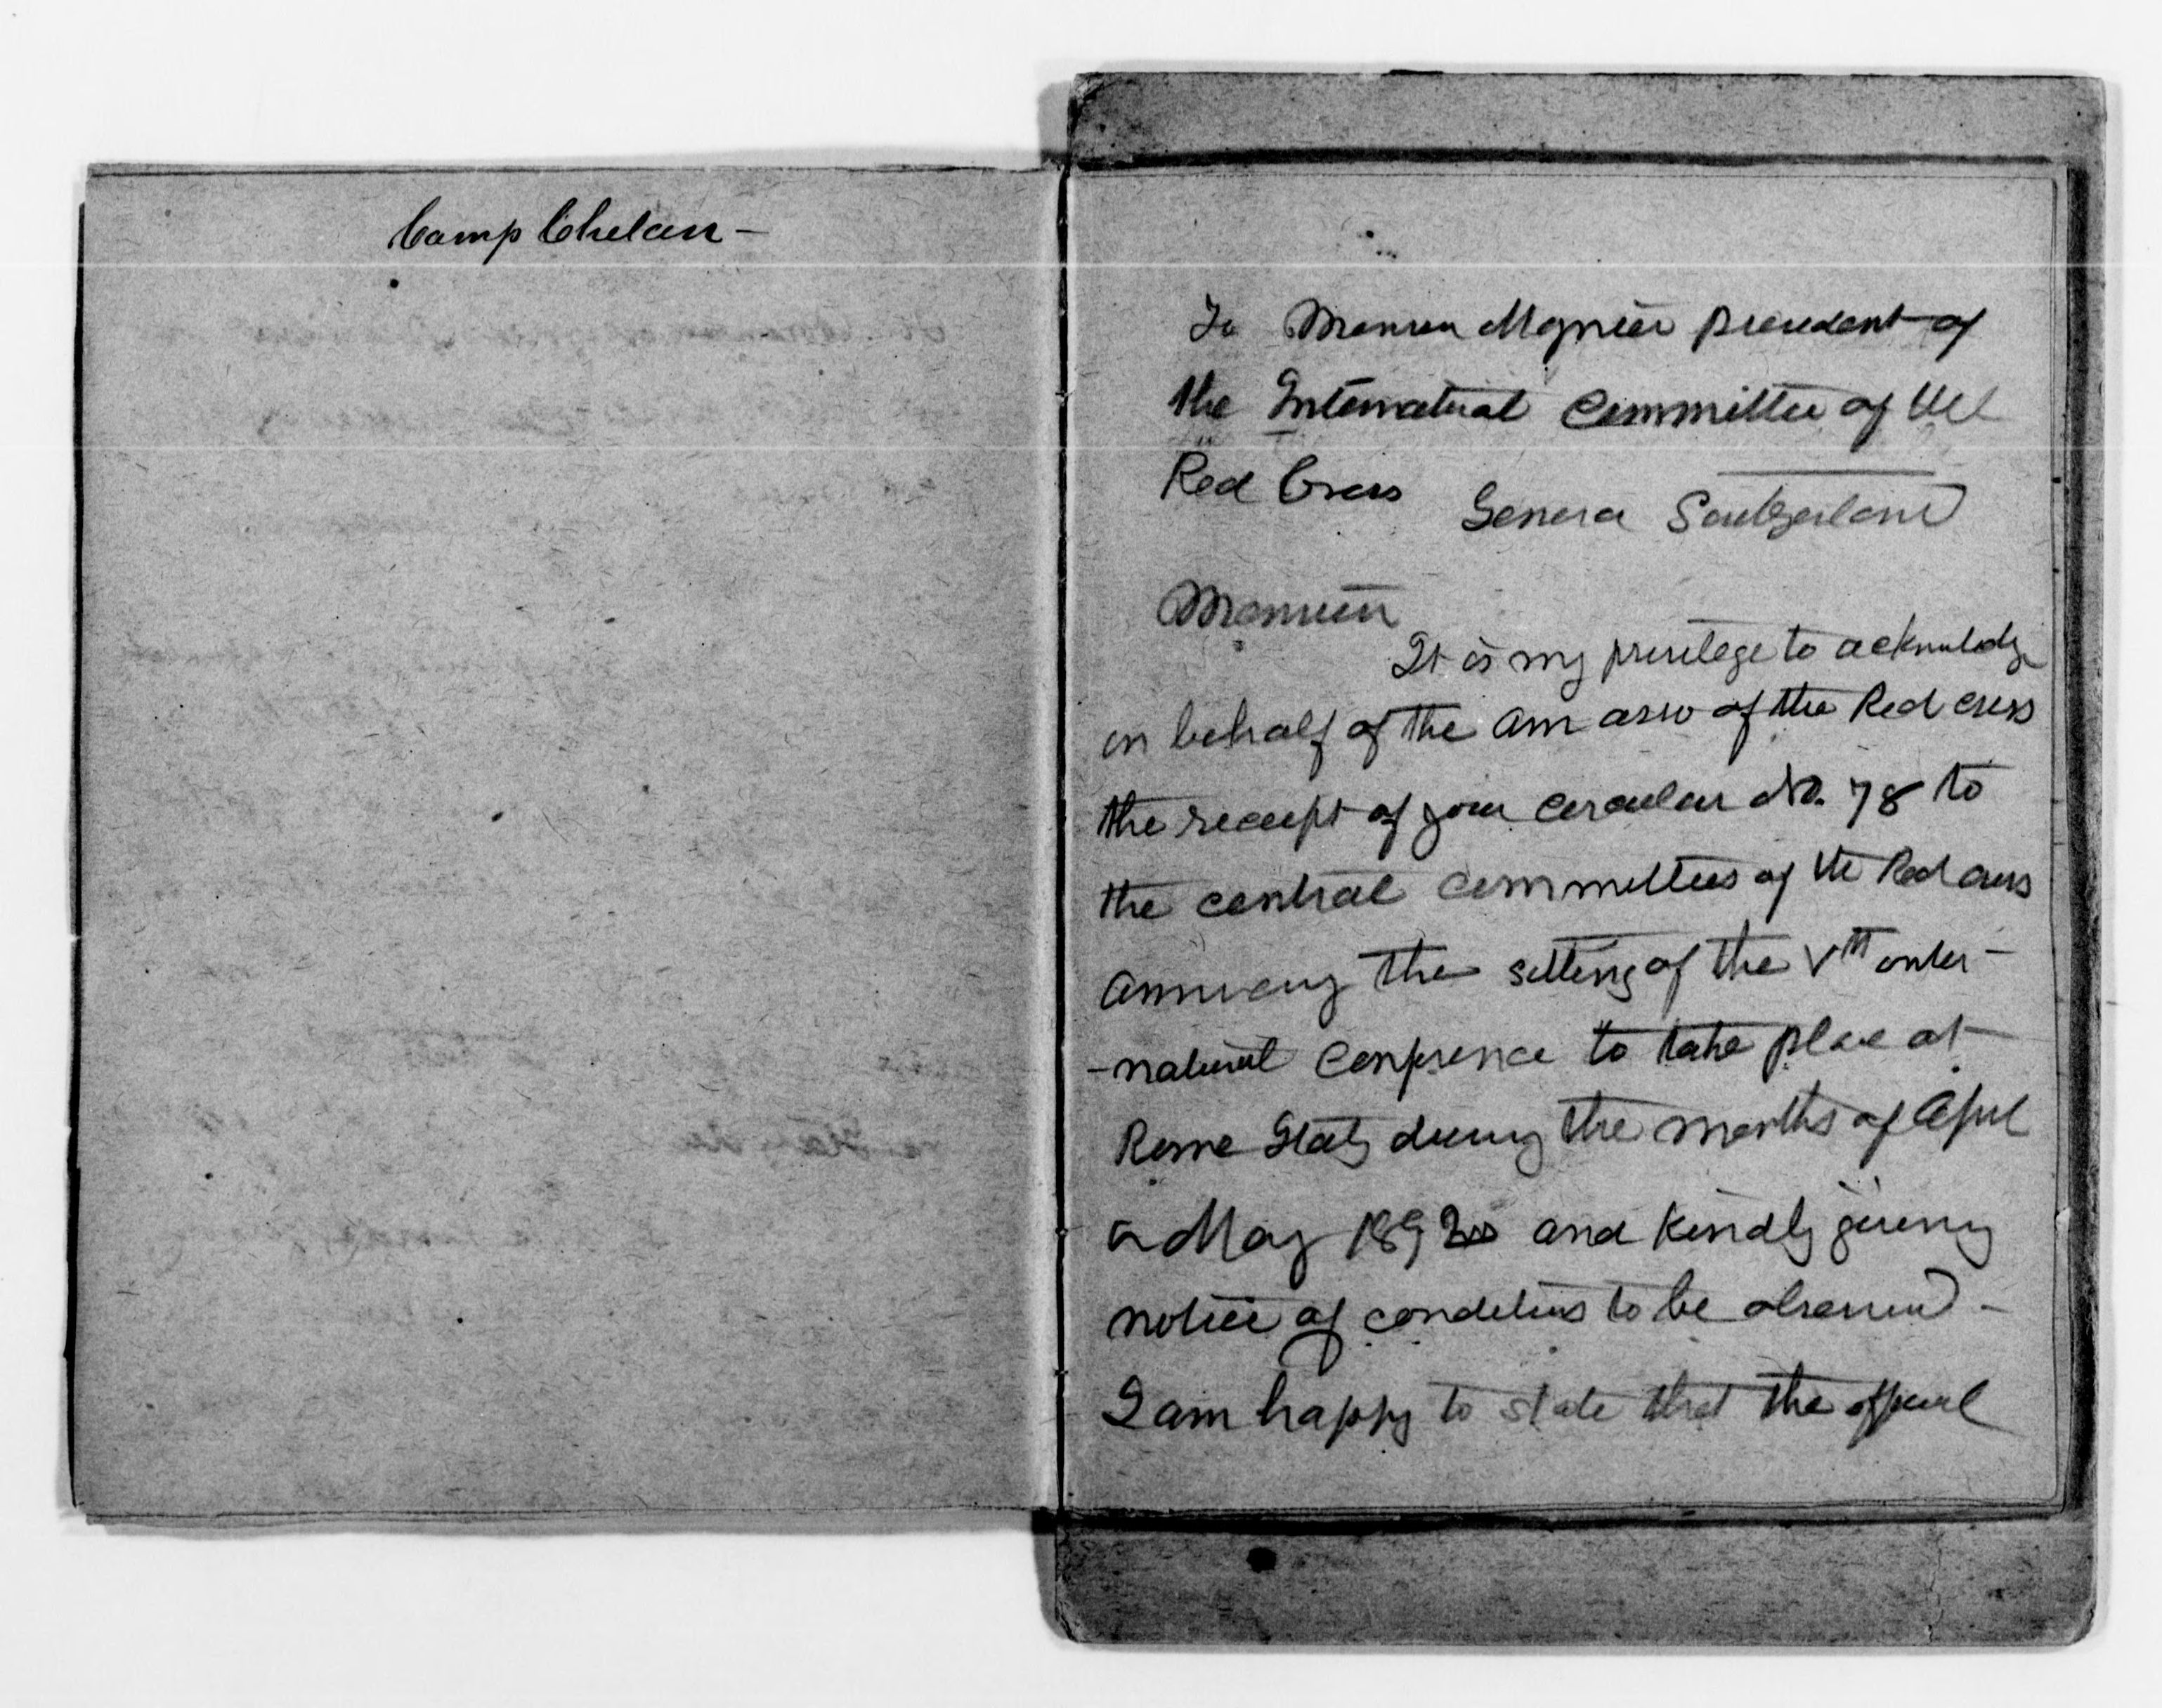 Camp Chelan -
To Monsieur Moynier President of
the International Committee of the
Red Cross Geneva Switzerland
Monsieur
It is my privilege to acknowledge
on behalf of the Am asso of the Red Cross
the receipt of your circular No. 78 to
the central committees of the Red Cross
announcing the sitting of the Vth inter-
-national Conference to take place at
Rome Italy during the months of April
or May 1892 and kindly giving
notice of conditions to be observed -
I am happy to state that the official